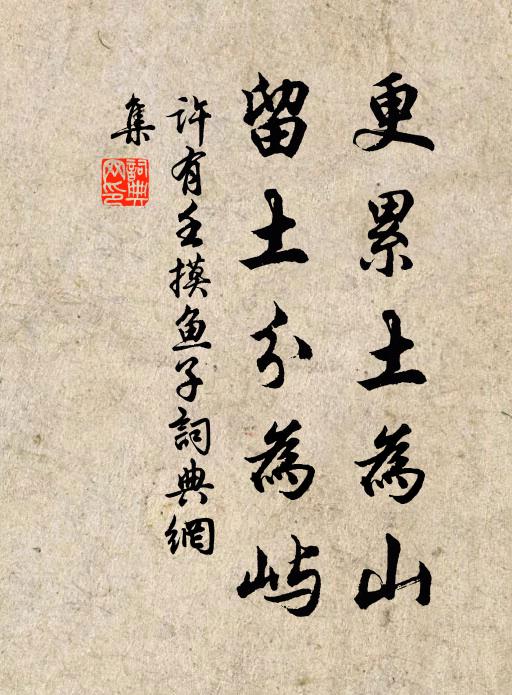 更累土為山
留土分為屿
許有壬摸魚子詞典網
集
詞典網印